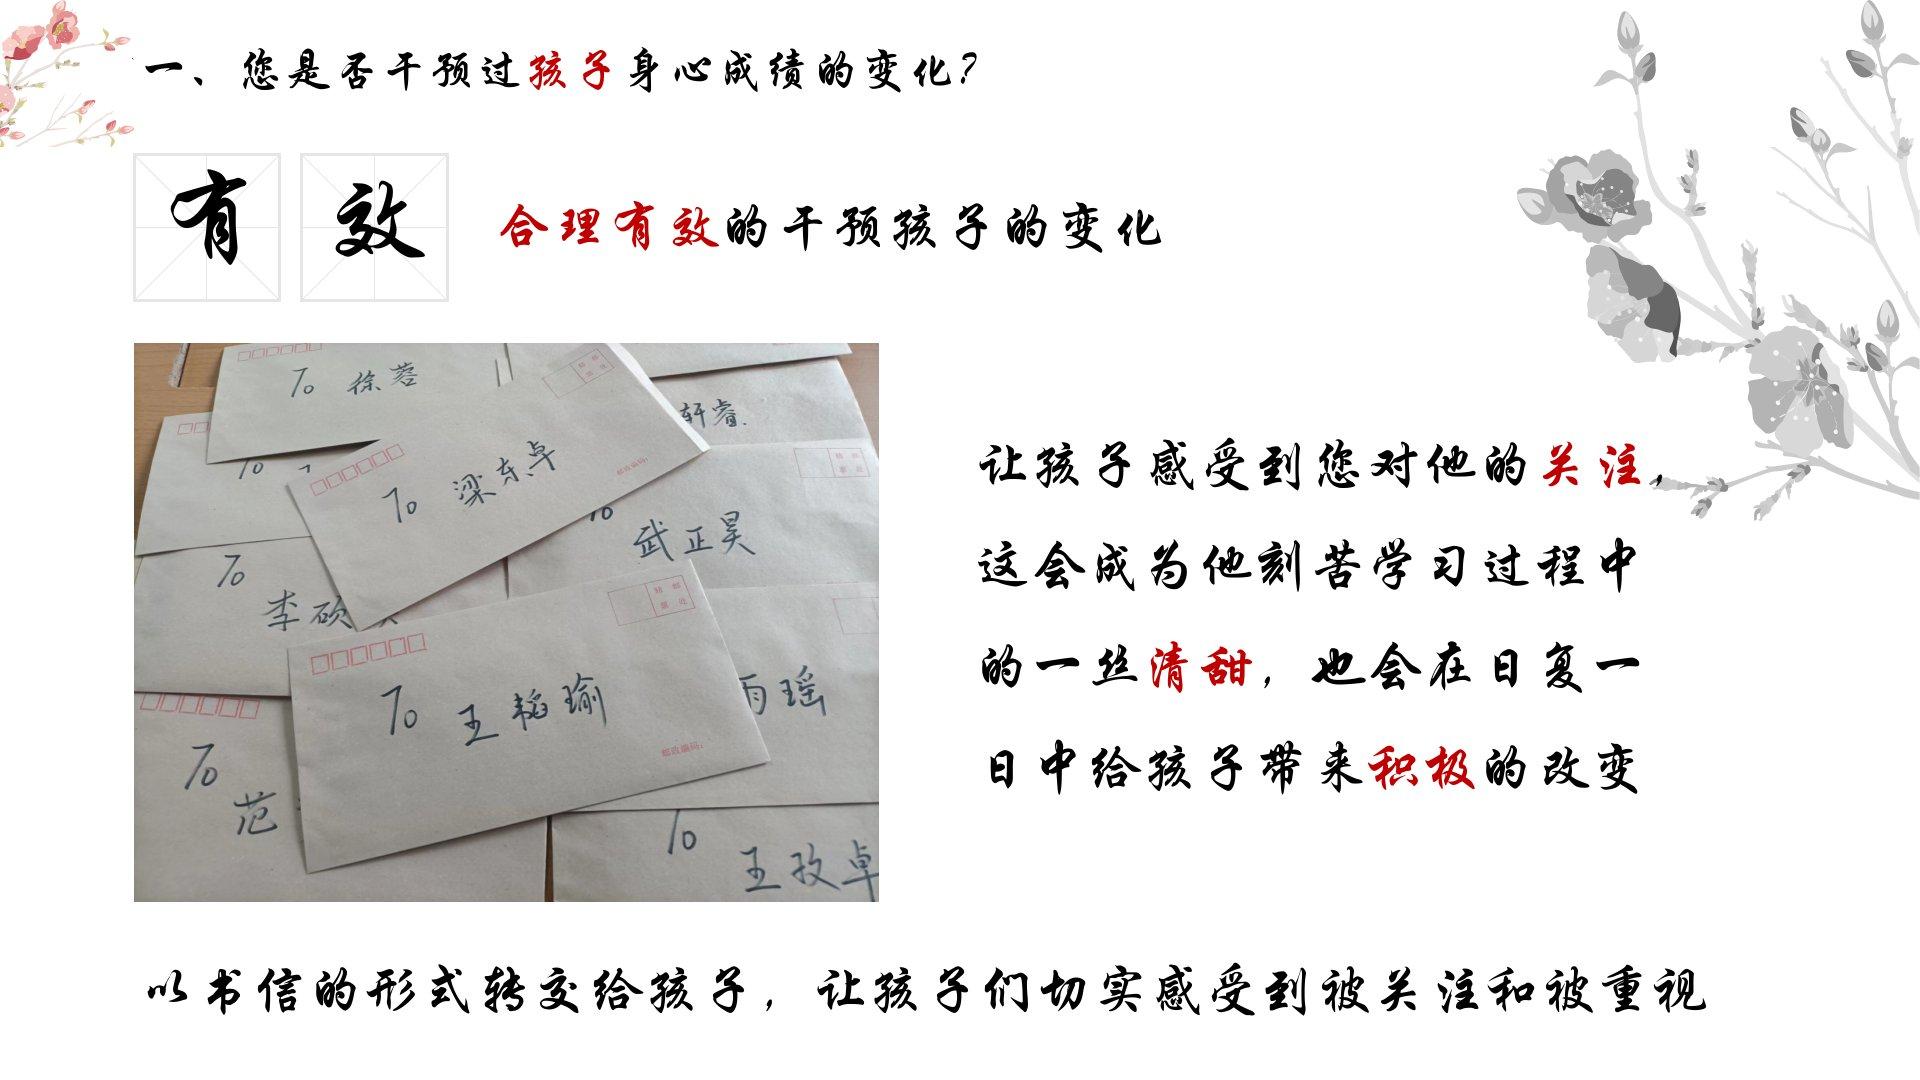 一、您是否干预过孩子身心成绩的变化？
有效
合理有效的干预孩子的变化
To 徐蓉
轩睿.
To
To 梁东卓
邮政编码：
To 武正昊
To 李硕
贴邮
票处
To 王韬瑜
邮政编码：
雨瑶
To 范
To 王玫卓
让孩子感受到您对他的关注，
这会成为他刻苦学习过程中
的一丝清甜，也会在日复一
日中给孩子带来积极的改变
以书信的形式转交给孩子，让孩子们切实感受到被关注和被重视